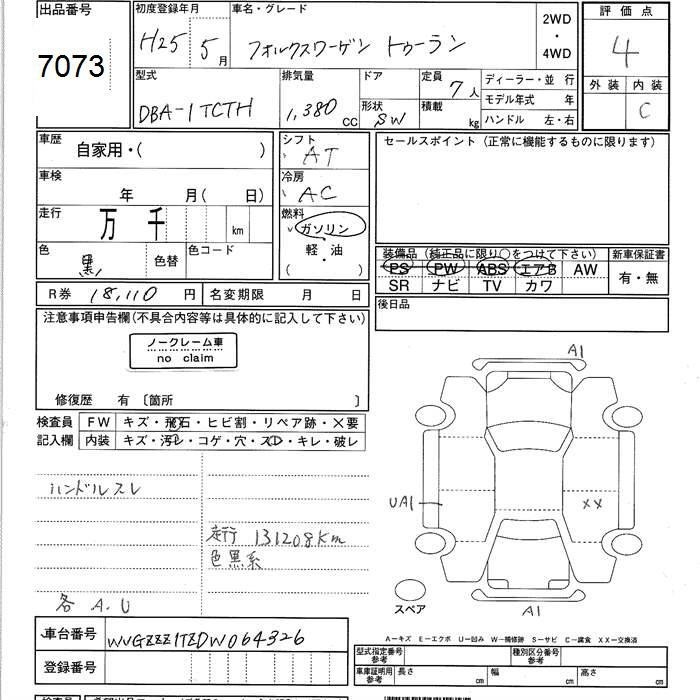 出品番号
7073
初度登録年月
H25 5月
車名・グレード
フォルクスワーゲン トゥーラン
2WD
・
4WD
評価点
4
外装 内装
C
型式
DBA-1TCTH
排気量
1,380 cc
ドア
形状
SW
定員
7人
積載
kg
ディーラー・並行
モデル年式 年
ハンドル 左・右
車歴
自家用・( )
車検
年 月( 日)
走行
万 千 km
色
黒
色替
色コード
シフト
AT
冷房
AC
燃料
ガソリン
・
軽・油
( )
セールスポイント (正常に機能するものに限ります)
装備品 (純正品に限り○をつけて下さい)
PS PW ABS エアB AW
SR ナビ TV カワ
新車保証書
有・無
後日品
R券 18,110 円
名変期限 月 日
注意事項申告欄(不具合内容等は具体的に記入して下さい)
ノークレーム車
no claim
修復歴 有 〔箇所 〕
検査員
記入欄
FW キズ・飛石・ヒビ割・リペア跡・×要
内装 キズ・汚レ・コゲ・穴・スレ・キレ・破レ
ハンドルスレ
走行 131208Km
色黒系
各 A.U
A1
UA1
XX
スペア
A1
A―キズ E―エクボ U―凹み W―補修跡 S―サビ C―腐食 XX―交換済
車台番号
WVGZZZ1TZDW064326
登録番号
型式指定番号
参考
種別区分番号
参考
車庫証明用
参考
長さ cm
幅 cm
高さ cm